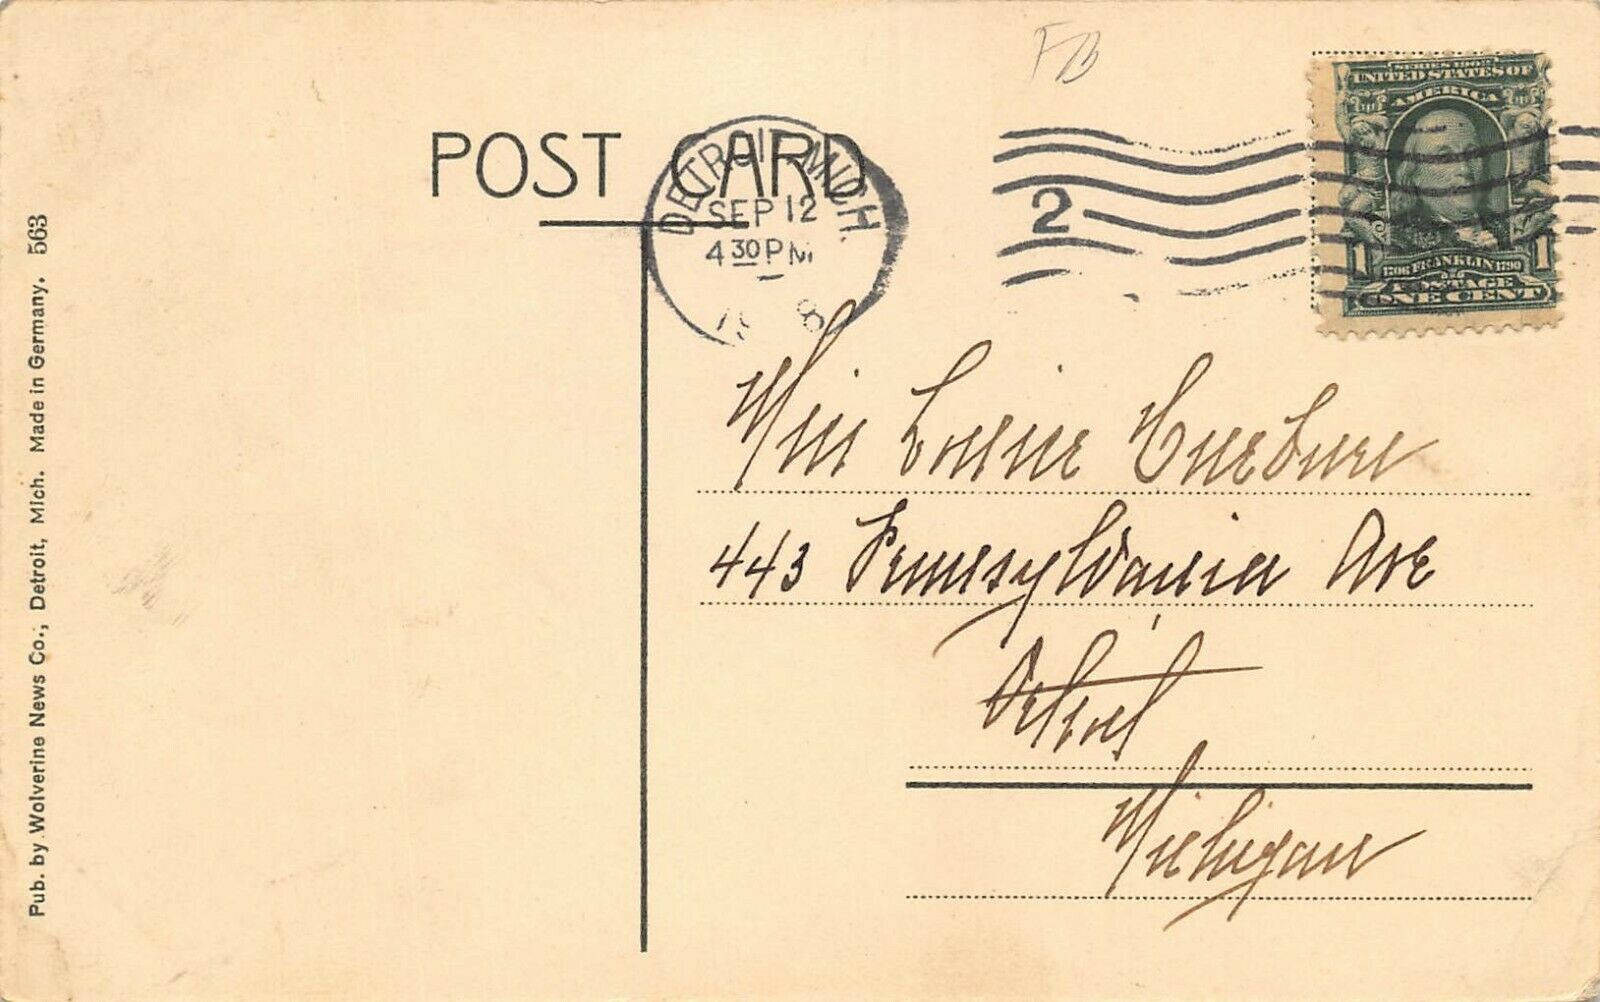 FB
POST CARD
DETROIT, MICH.
SEP 12
4 30 PM
8
2
SERIES 1902
UNITED STATES OF
AMERICA
1 1
1706 FRANKLIN 1790
POSTAGE
ONE CENT
Miss Louise
443 Pennsylvania Ave
Detroit
Michigan
Pub. by Wolverine News Co., Detroit, Mich. Made in Germany. 563